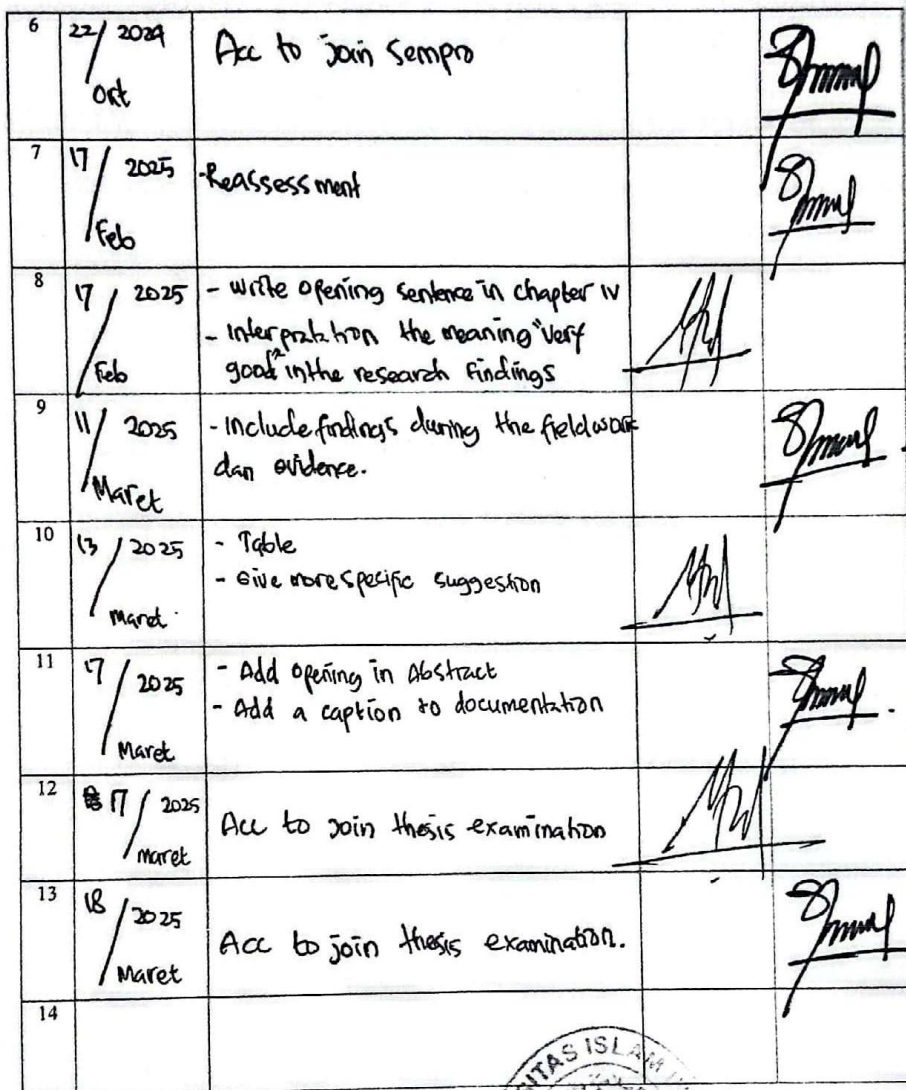 6 22/ 2024 Acc to join Sempro
Okt
7 17/ 2025 -Reassessment
Feb
8 17/ 2025 - write opening sentence in chapter IV
- Interpretation the meaning "very
Feb good" in the research findings
9 11/ 2025 - Include findings during the fieldwork
Maret dan evidence.
10 13/ 2025 - Table
- Give more specific suggestion
Maret
11 17/ 2025 - Add opening in Abstract
- Add a caption to documentation
Maret
12 17/ 2025 Acc to join thesis examination
maret
13 18/ 2025 Acc to join thesis examination.
Maret
14
ITAS ISLAM